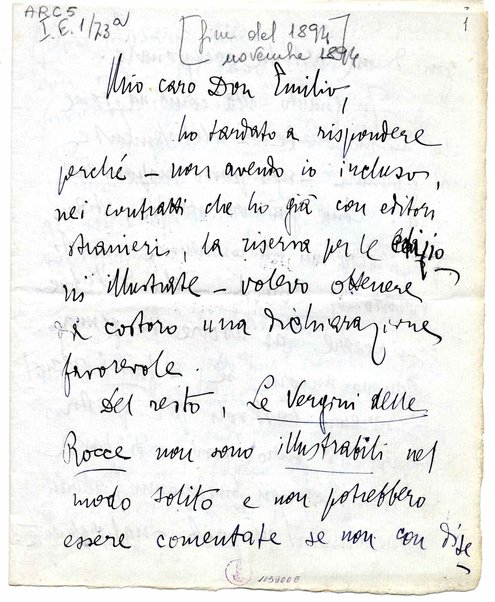 ARC 5
I.E. 1/73a
1
[fine del 1894
novembre 1894]
Mio caro Don Emilio,
ho tardato a rispondere
perché – non avendo io incluso,
nei contratti che ho già con editori
stranieri, la riserva per le edizio-
ni illustrate – volevo ottenere
da costoro una dichiarazione
favorevole.
Del resto, Le Vergini delle
Rocce non sono illustrabili nel
modo solito e non potrebbero
essere comentate se non con dise-